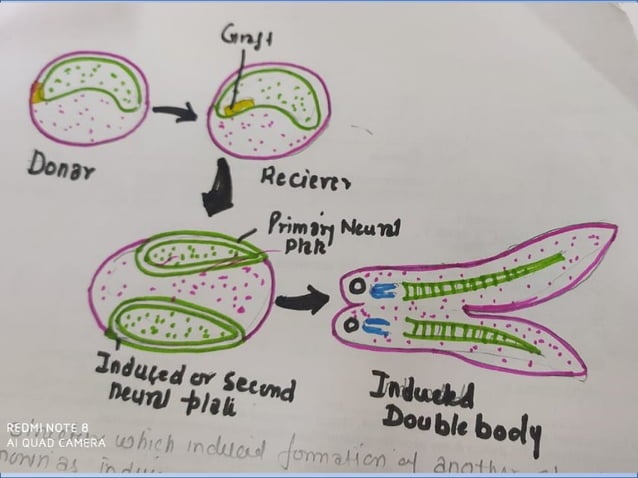 Graft
Donar
Reciever
Primary Neural
Plate
Induced or Second
neural plate
Induced
Double body
REDMI NOTE 8
AI QUAD CAMERA
which induced formation of another
known as